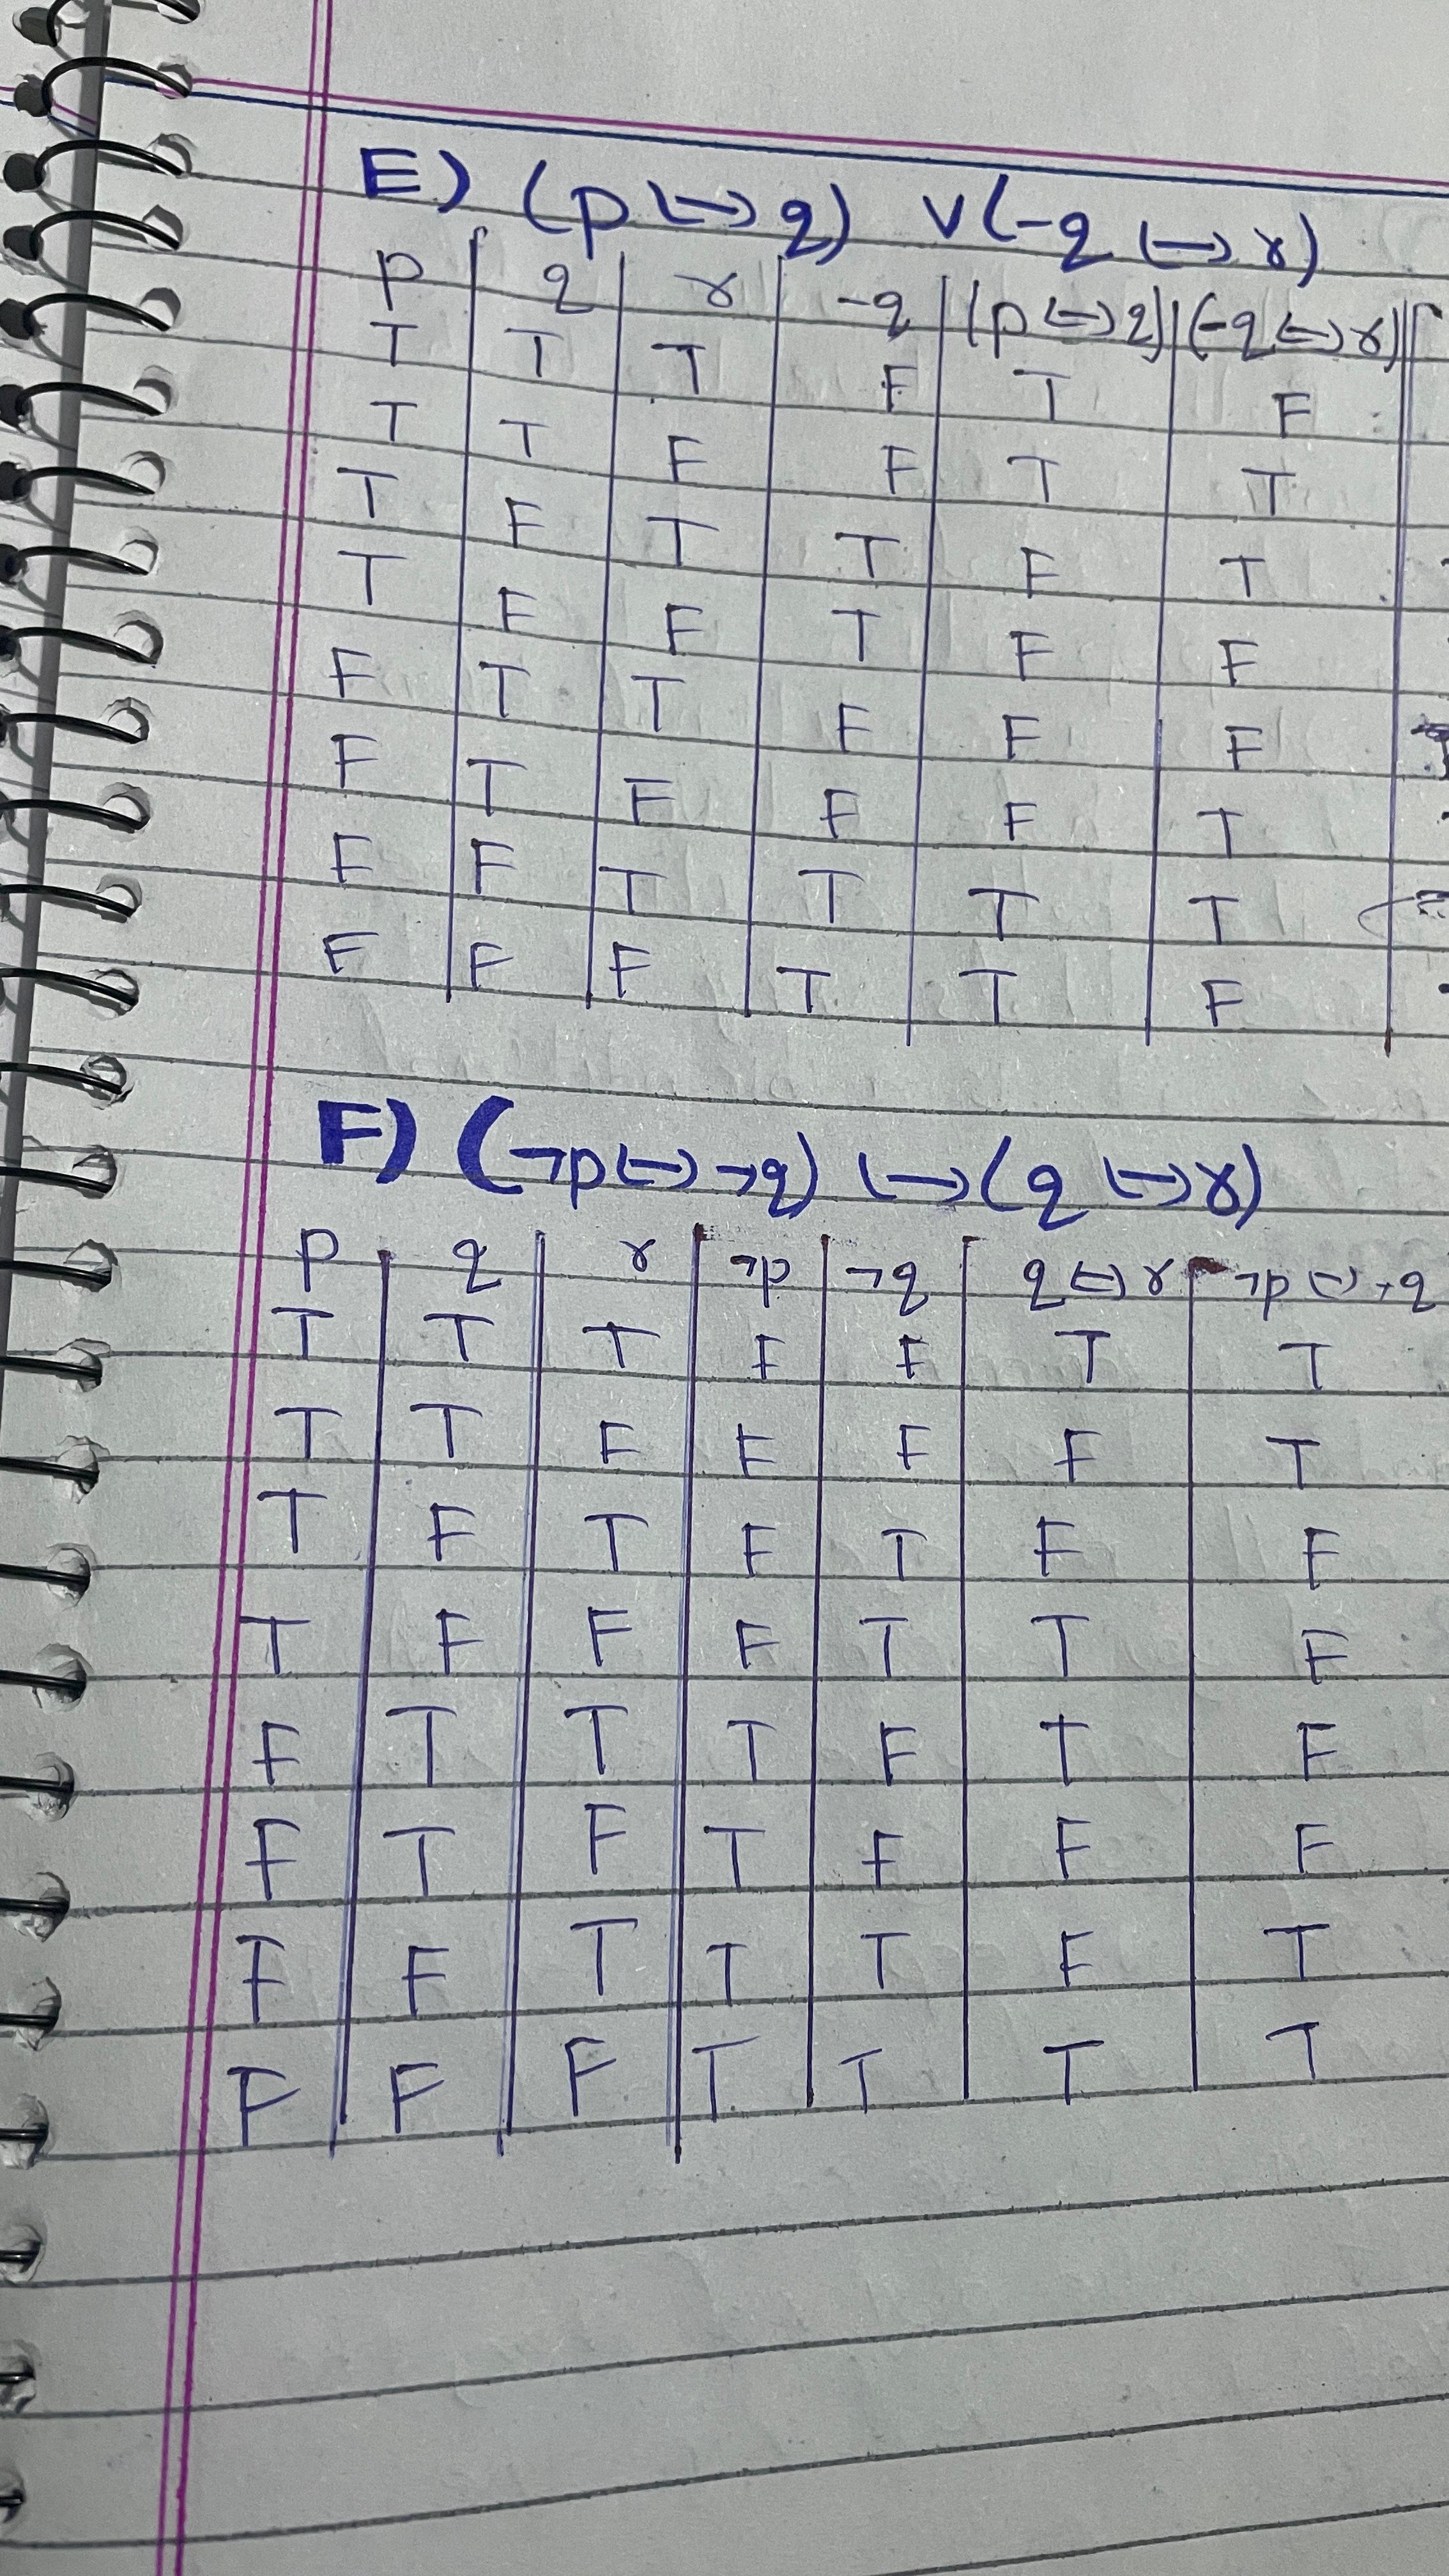 E) (p ↔ q) ∨ (¬q ↔ r)
p q r -q (p ↔ q) (-q ↔ r)
T T T F T F
T T F F T T
T F T T F T
T F F T F F
F T T F F F
F T F F F T
F F T T T T
F F F T T F
F) (¬p ↔ ¬q) ↔ (q ↔ r)
p q r ¬p ¬q q ↔ r ¬p ↔ ¬q
T T T F F T T
T T F F F F T
T F T F T F F
T F F F T T F
F T T T F T F
F T F T F F F
F F T T T F T
F F F T T T T